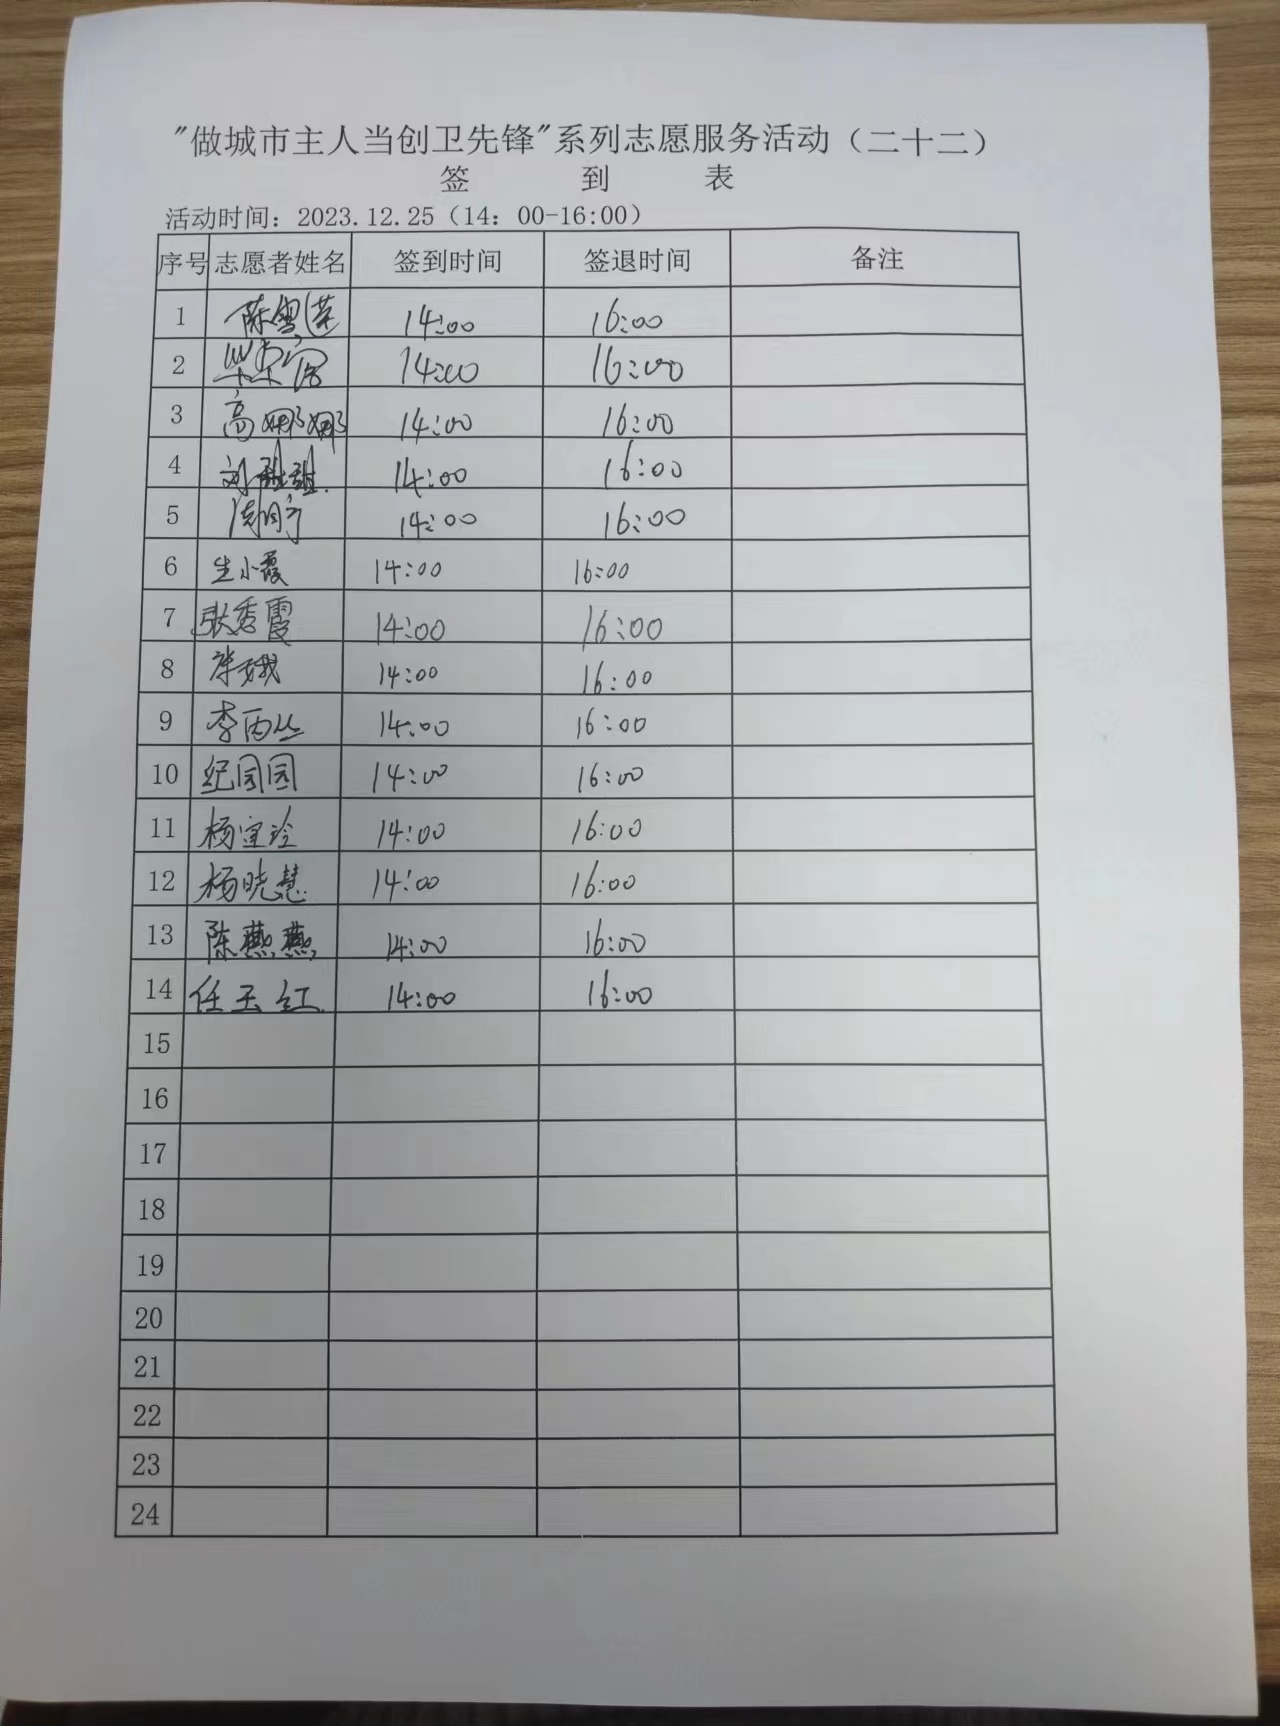 "做城市主人当创卫先锋"系列志愿服务活动（二十二）
签 到 表
活动时间：2023.12.25（14：00-16:00）
序号 志愿者姓名 签到时间 签退时间 备注
1 陈 14:00 16:00
2 14:00 16:00
3 高娜娜 14:00 16:00
4 刘甜甜 14:00 16:00
5 14:00 16:00
6 生小霞 14:00 16:00
7 张秀霞 14:00 16:00
8 14:00 16:00
9 李丙丛 14:00 16:00
10 纪园园 14:00 16:00
11 杨宝玲 14:00 16:00
12 杨晓慧 14:00 16:00
13 陈燕燕 14:00 16:00
14 任玉红 14:00 16:00
15
16
17
18
19
20
21
22
23
24